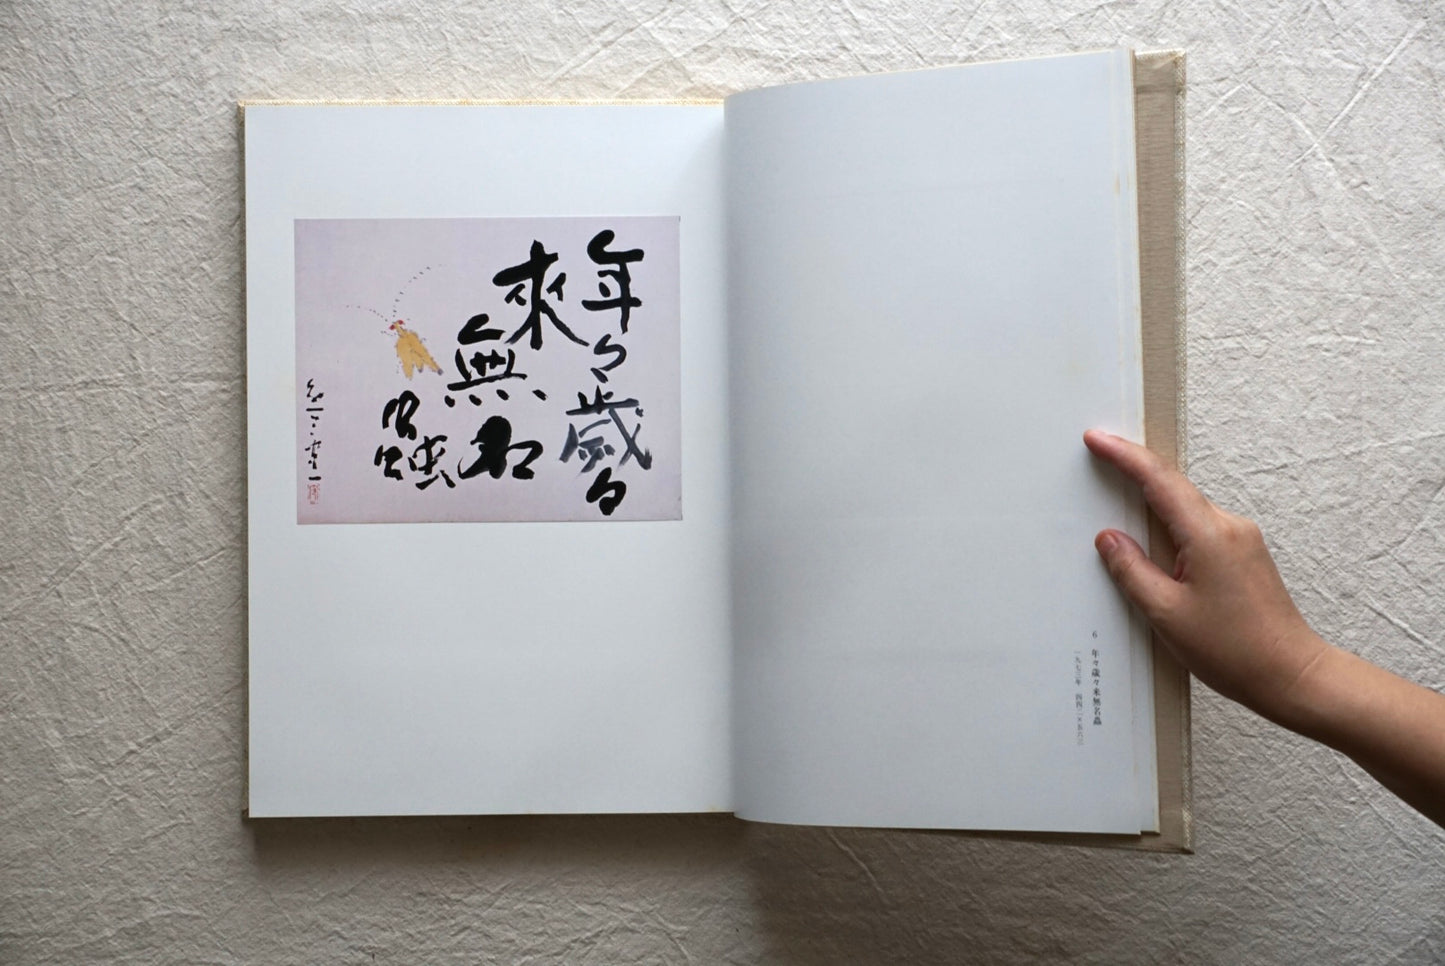 年々歳々
來
無名
蟲
6 年々歳々来無名蟲
一九七三年 四四二×五六三